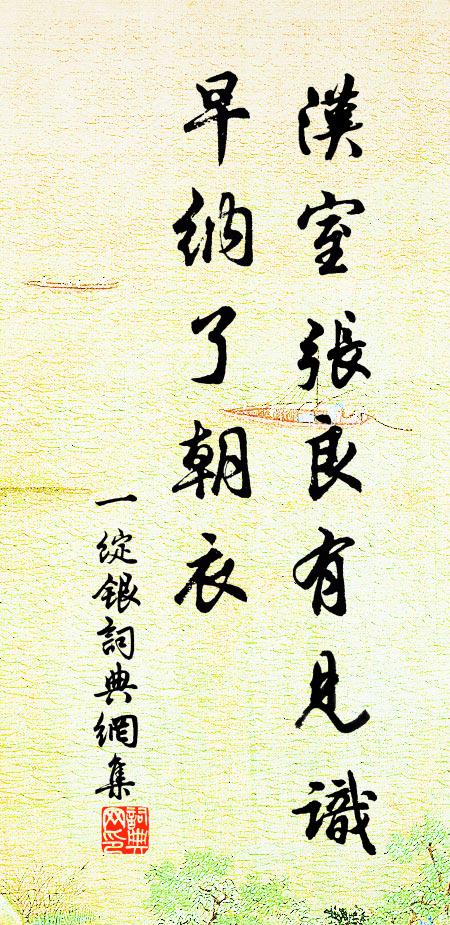 漢室張良有見識
早納了朝衣
一綻銀詞典網集
詞典
网印